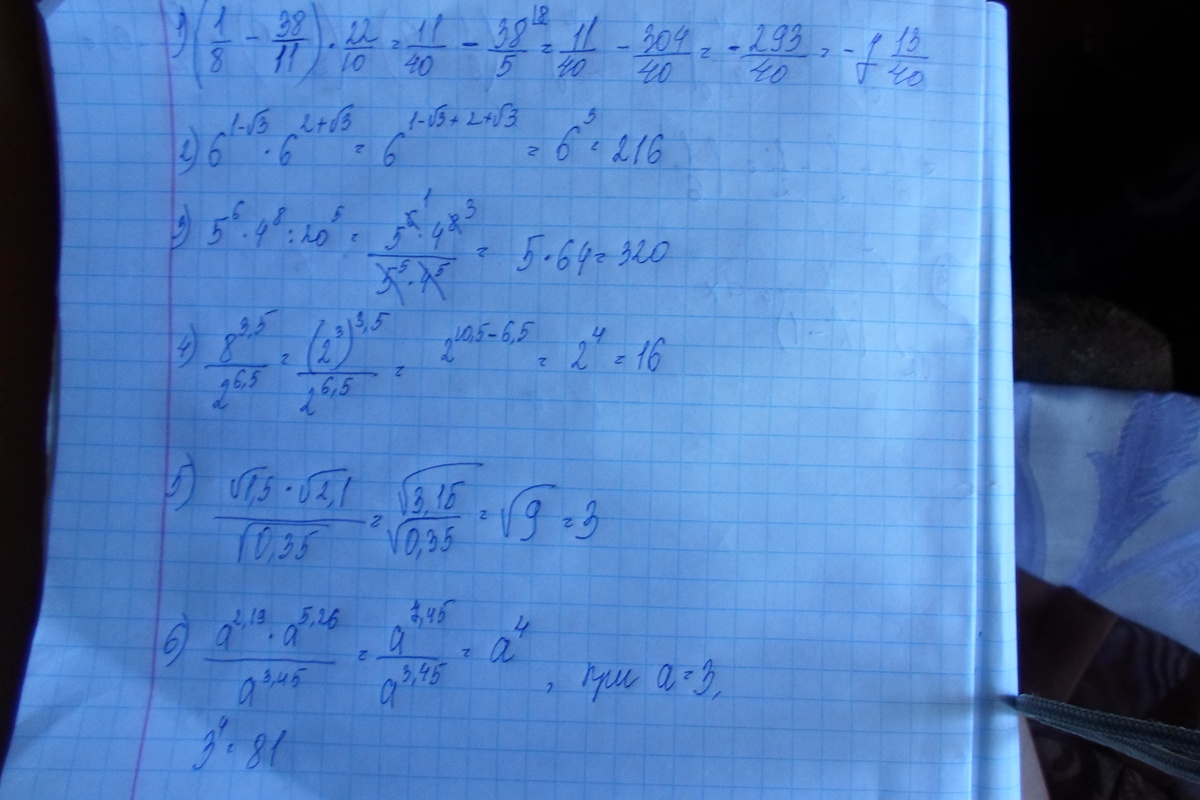 1) (1/8 - 38/11) · 22/10 = 11/40 - 38/5 = 11/40 - 304/40 = - 293/40 = - 7 13/40
2) 6^(1-√3) · 6^(2+√3) = 6^(1-√3+2+√3) = 6^3 = 216
3) 5^6 · 4^8 : 20^5 = (5^6 · 4^8)/(5^5 · 4^5) = 5 · 64 = 320
4) 8^(3,5)/2^(6,5) = (2^3)^(3,5)/2^(6,5) = 2^(10,5-6,5) = 2^4 = 16
5) (√1,5 · √2,1)/√0,35 = √3,15/√0,35 = √9 = 3
6) (a^(2,19) · a^(5,26))/a^(3,45) = a^(7,45)/a^(3,45) = a^4, при a = 3,
3^4 = 81